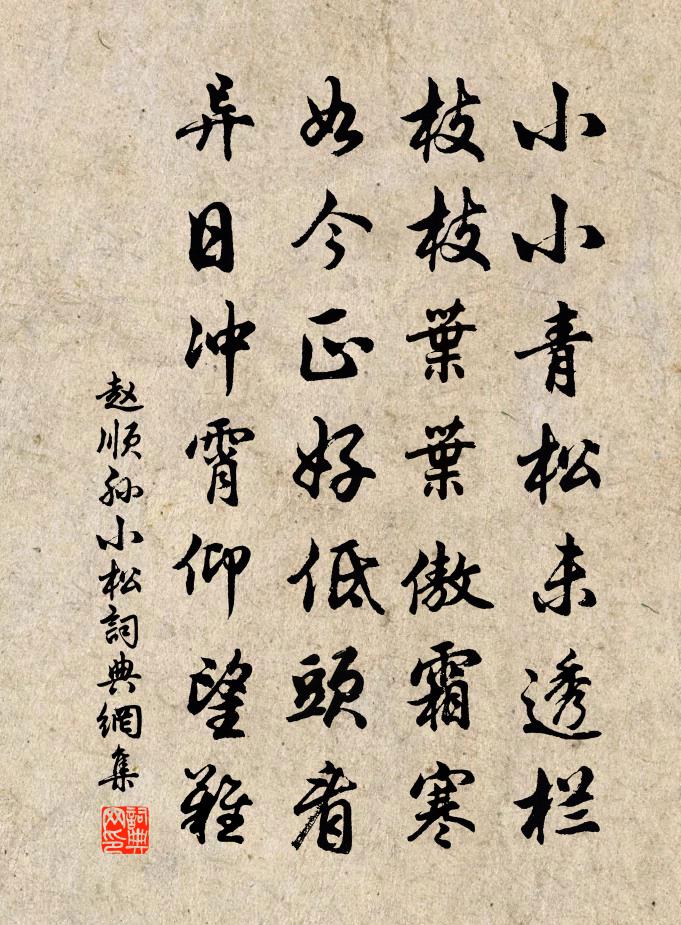 小小青松未透栏
枝枝葉葉傲霜寒
如今正好低頭看
异日冲霄仰望難
赵顺孙小松詞典網集
詞典网印